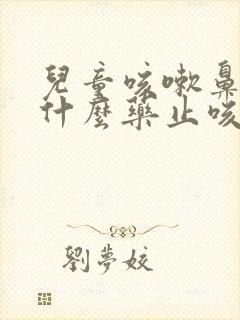 兒童咳嗽鼻
什麼藥止咳
劉夢姣